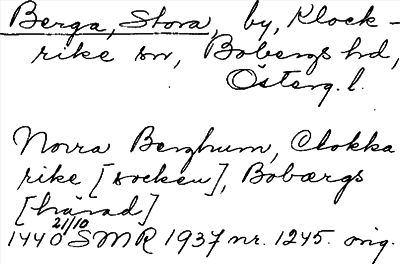 Berga, Stora, by, Klock-
rike sn, Bobergs hd,
Österg. l.
Norra Berghum, Clokka
rike [socken], Bobærgs
[härad]
1440 21/10 SMR 1937 nr. 1245. orig.